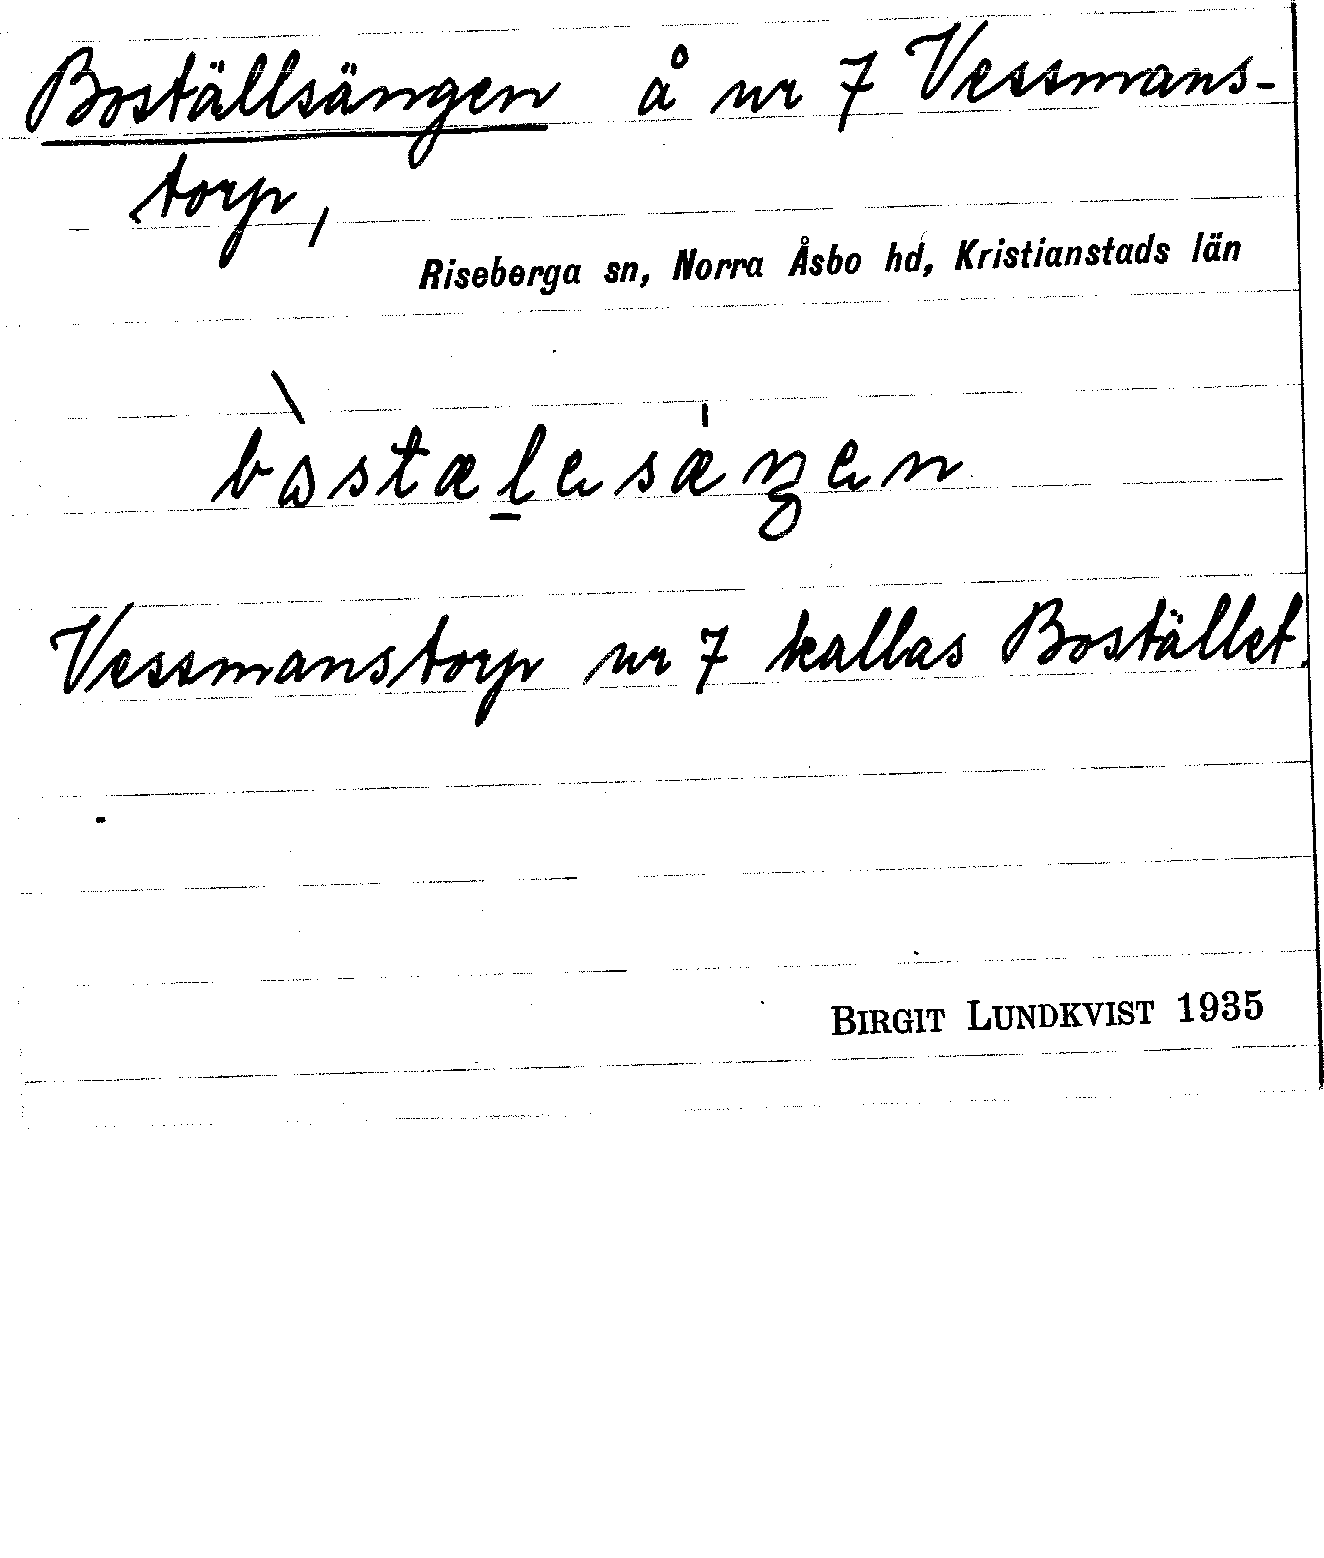 Boställsängen å nr 7 Vessmans-
torp,
Riseberga sn, Norra Åsbo hd, Kristianstads län
bòstælesæŋen
Vessmanstorp nr 7 kallas Bostället.
BIRGIT LUNDKVIST 1935